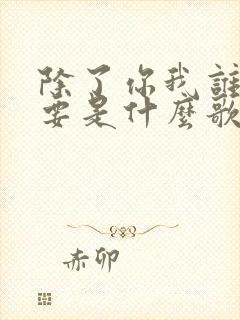 除了你我誰
要是什麼歌
赤卯